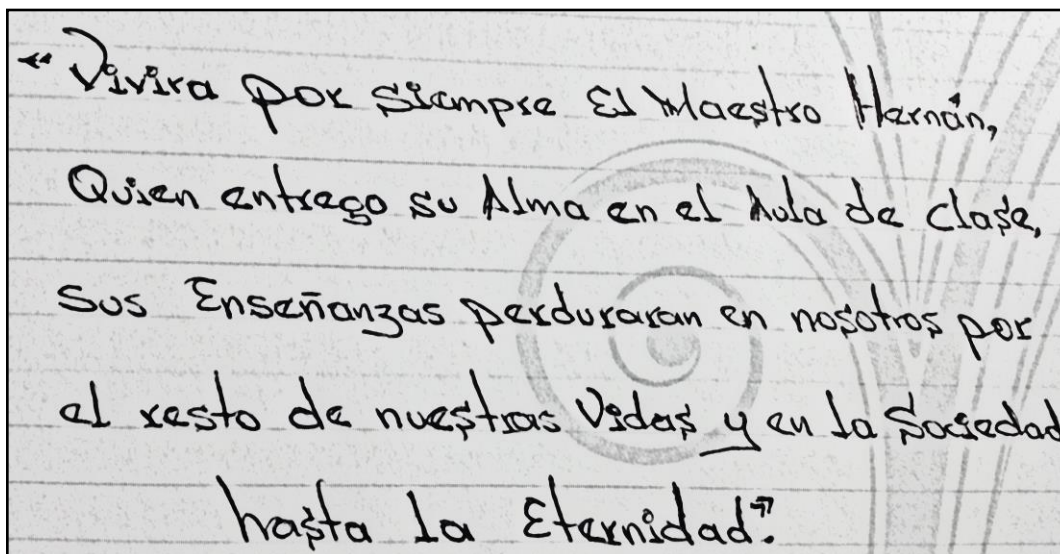 “Vivira por siempre El Maestro Hernán,
Quien entrego su Alma en el Aula de clase,
sus Enseñanzas perduraran en nosotros por
el resto de nuestras Vidas y en la Sociedad
hasta la Eternidad”.